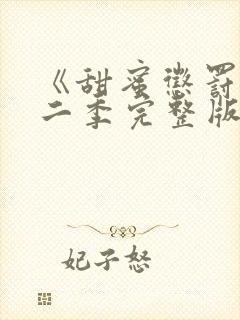 《甜蜜惩罚
二季完整版
妃子怒